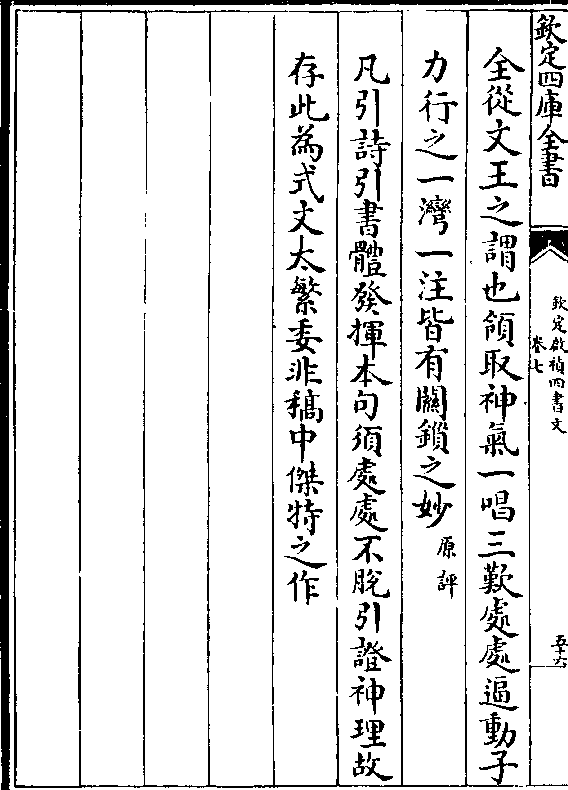 欽定四庫全書
欽定啟禎四書文
卷七
五十六
全從文王之謂也領取神氣一唱三歎處處逼動子
力行之一灣一注皆有關鎖之妙 原評
凡引詩引書體發揮本句須處處不脫引證神理故
存此為式文太繁委非稿中傑特之作